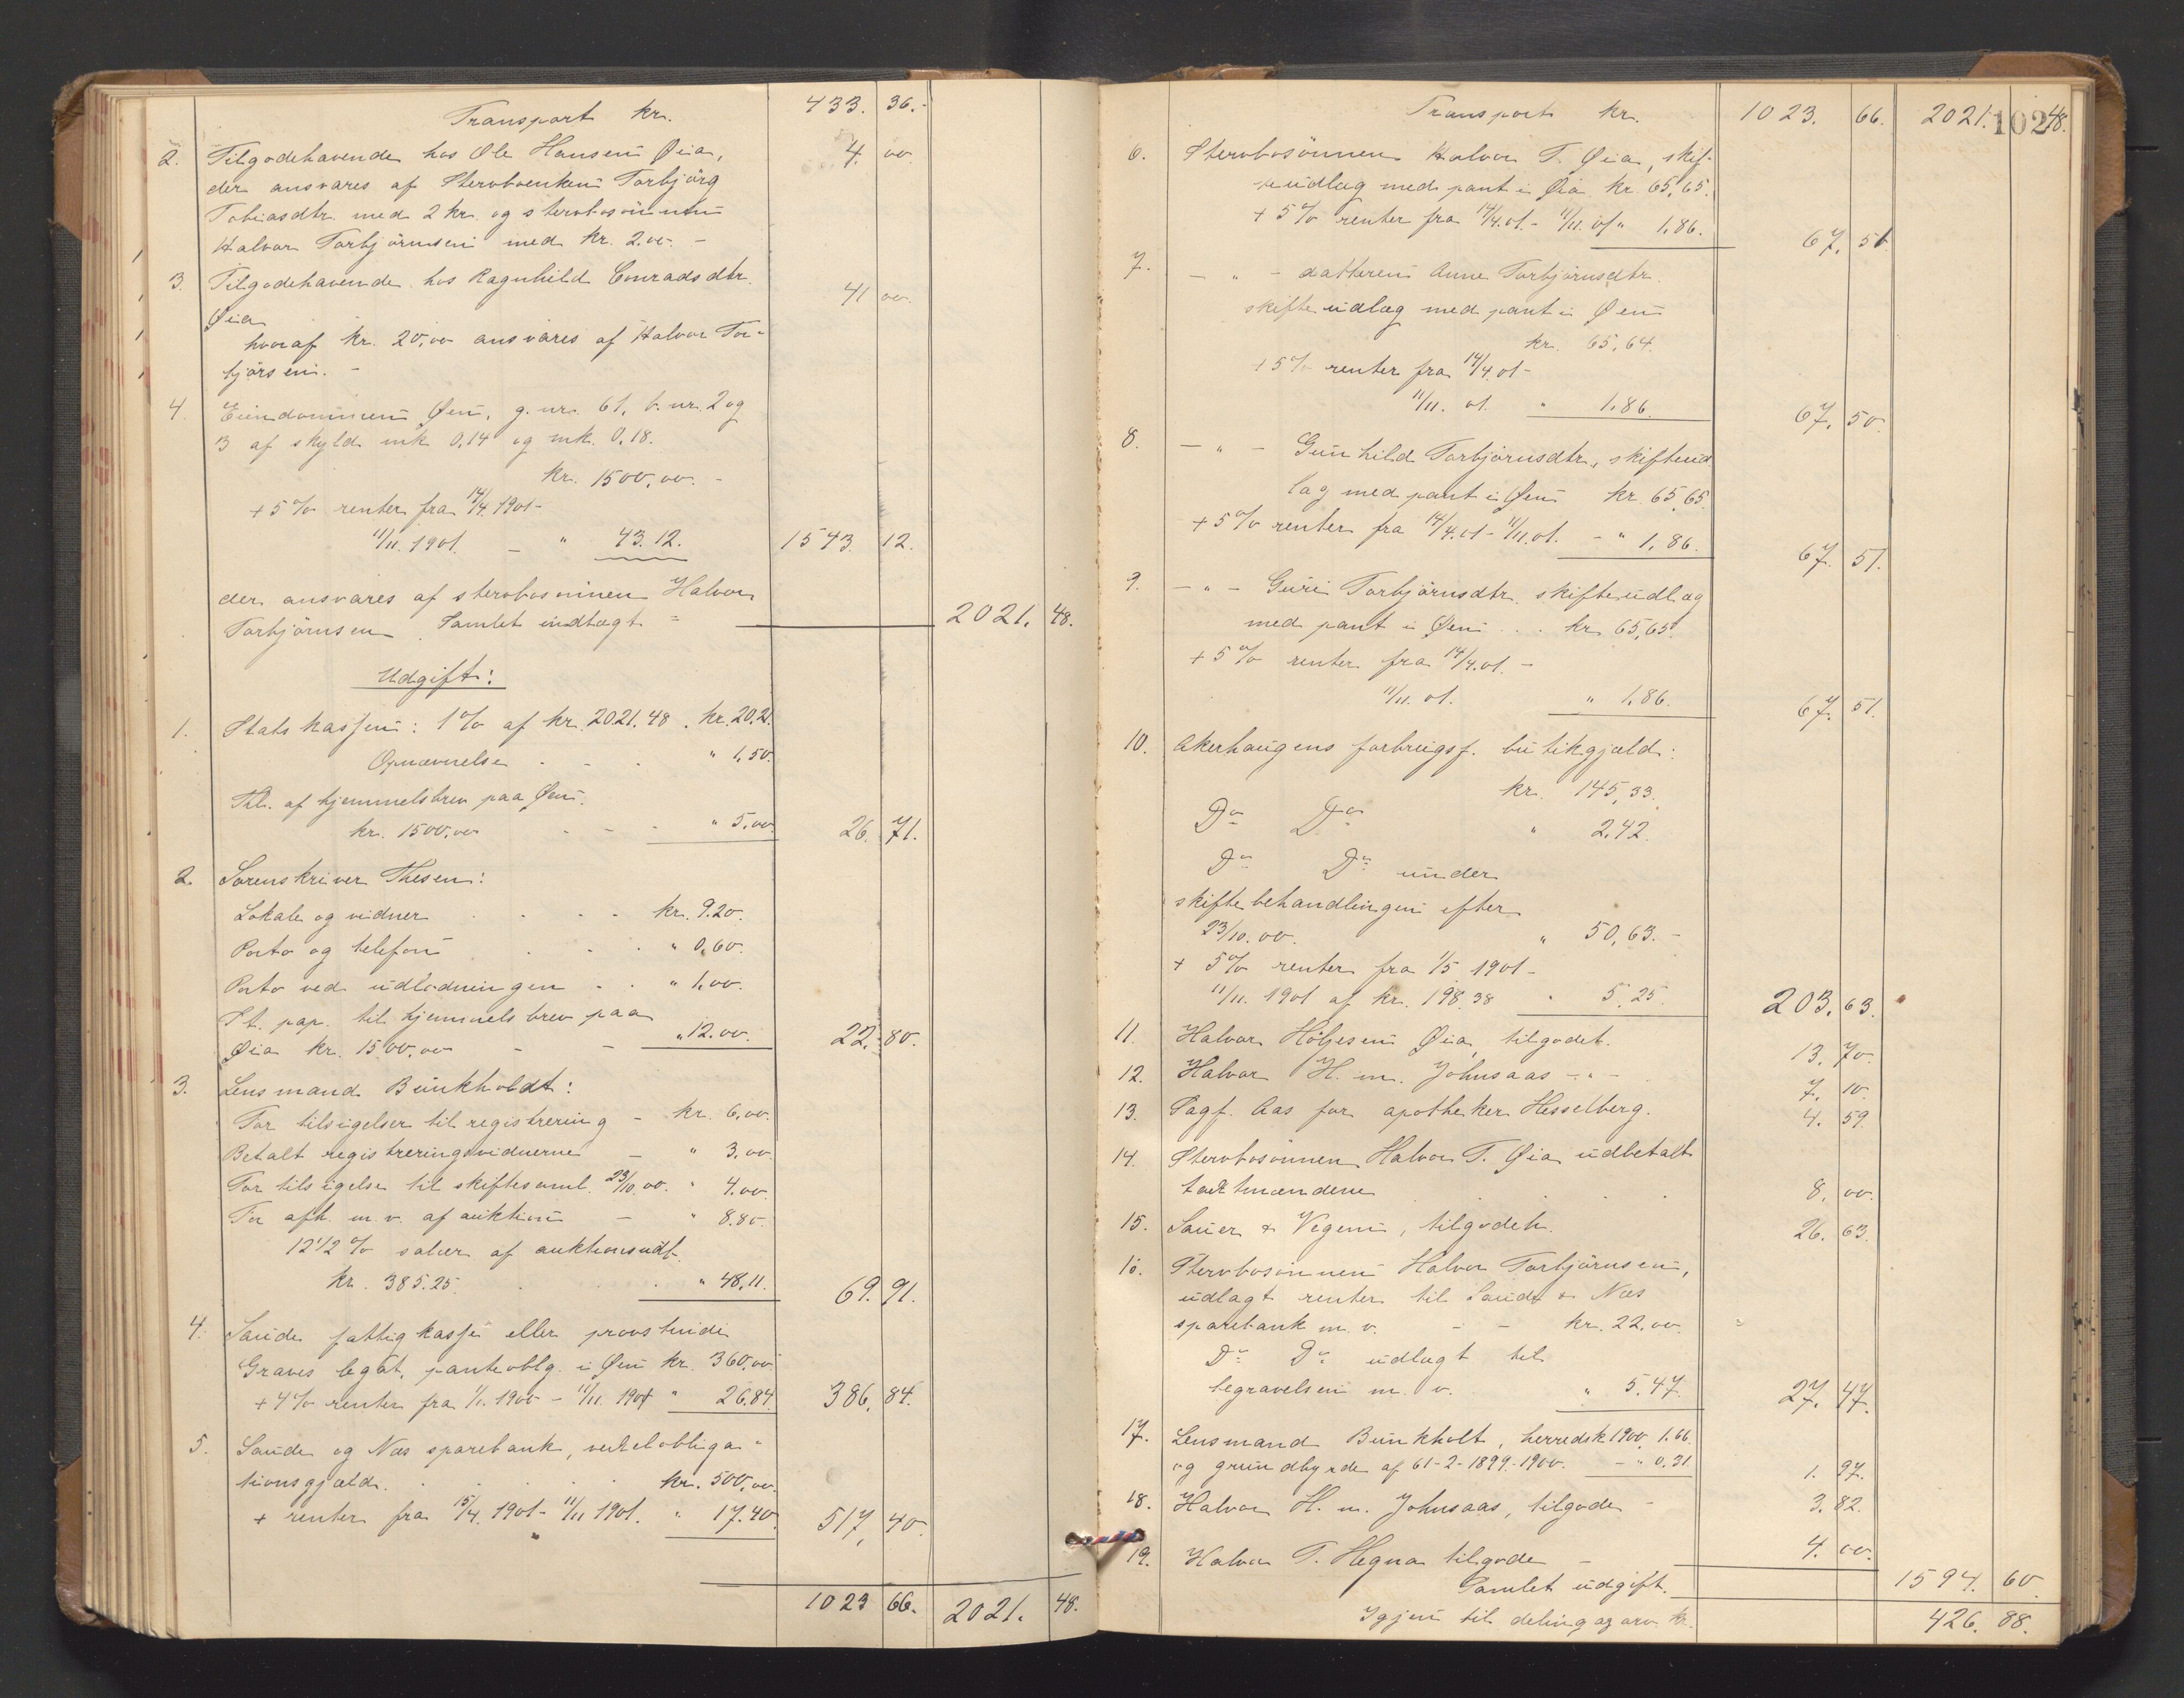 Transport kr. 433. 36.-
2. Tilgodehavende hos Ole Hansen Øia, 4. 00.
der ansvares af Stervboenken Torbjörg
Tobiasdtr. med 2 kr. og stervbosönnen
Halvor Torbjörnsen med kr. 2.00. -
3. Tilgodehavende hos Ragnhild Conradsdtr. 41 00.
Øia
hvoraf kr. 20,00 ansvares af Halvor Tor-
björsen. -
4. Eiendommen Øen, g. nr. 61, b. nr. 2 og
3 af skyld mk. 0,14 og mk. 0,18.
kr. 1500,00. -
+ 5 % renter fra 14/4. 1901 -
11/11. 1901. - " 43.12. 1543. 12.
der ansvares af stervbosönnen Halvor
Torbjörnsen. Samlet indtægt = 2021. 48.
Udgift:
1. Statskassen: 1 % af kr. 2021.48. kr. 20.21.
Opnævnelse . - . " 1,50.
Thl. af hjemmelsbrev paa Øen.
kr. 1500,00 - - - " 5,00. 26. 71.
2. Sorenskriver Thesen:
Lokale og vidner . . . - kr. 9.20.
Porto og telefon . . . " 0,60.
Porto ved udlodningen . . " 1,00.
St. pap. til hjemmelsbrev paa
Øia kr. 1500,00 - - " 12.00. 22. 80.
3. Lensmand Bunkholdt:
For tilsigelser til registrering - kr. 6,00.
Betalt registreringsvidnerne - " 3,00.
For tilsigelse til skiftesaml. 23/10.00. " 4,00.
For afh. m. v. af auktion - " 8.80.
12 1/2 % salær af auktionsudb.
kr. 385.25. . . . " 48,11. 69. 91.
4. Saude fattigkasse eller provstinde
Graves legat, panteoblg. i Øen kr. 360,00
+ 4 % renter fra 1/1. 1900 - 11/11. 1901 " 26.84. 386. 84.
5. Saude og Nes sparebank, vexelobliga-
tionsgjæld. . . . . kr. 500,00.
+ renter fra 15/4. 1901 - 11/11 1901. " 17.40. 517, 40.
1023 66. 2021. 48.
102
Transport kr. 1023. 66. 2021. 48.
6. Stervbosönnen Halvor T. Øia, skif-
teudlæg med pant i Øia kr. 65,65.
+ 5 % renter fra 14/4.01. - 11/11. 01 " 1,86. 67. 51.
7. - " - datteren Anne Torbjörnsdtr.
skifteudlæg med pant i Øen
kr. 65,64.
+ 5 % renter fra 14/4.01 -
11/11. 01. " 1,86. 67, 50.
8. - " - Gunhild Torbjörnsdtr., skifteud
læg med pant i Øen kr. 65,65.
+ 5 % renter fra 14/4.01 - 11/11.01. - " 1,86. 67. 51.
9. - " - Guri Torbjörnsdtr. skifteudlæg
med pant i Øen . . . kr. 65,65.
+ 5 % renter fra 14/4.01. -
11/11. 01. " 1,86. 67. 51.
10. Akerhaugens forbrugsf. butikgjæld:
kr. 145,33.
Do Do " 2,42.
Do Do under
skiftebehandlingen efter
23/10.00. " 50,63. -
+ 5 % renter fra 1/5 1901 -
11/11. 1901 af kr. 198.38 " 5.25. 203, 63.
11. Halvor Höljesen Øia, tilgodeh. 13. 70.
12. Halvor H. m. Johnsaas - " - 7, 10.
13. Sagf. Aas for apotheker Hesselberg. 4. 59.
14. Stervbosönnen Halvor T. Øia udbetalt
taxtmændene . . . . 8, 00.
15. Sauer & Vegem, tilgodeh. 26. 63.
16. Stervbosönnen Halvor Torbjörnsen,
udlagt renter til Saude & Nes
sparebank m. v. - - kr. 22,00.
Do Do udlagt til
begravelsen m. v. " 5,47. 27, 47.
17. Lensmand Bunkholt, herredsk. 1900, 1.66.
og grundbyrde af 61-2-1899-1900. - " 0.31. 1. 97.
18. Halvor H. m. Johnsaas, tilgode - 3. 82.
19. Halvor T. Hegna tilgode - 4. 00.
Samlet udgift. 1594. 60
Igjen til deling as arv kr. 426. 88.